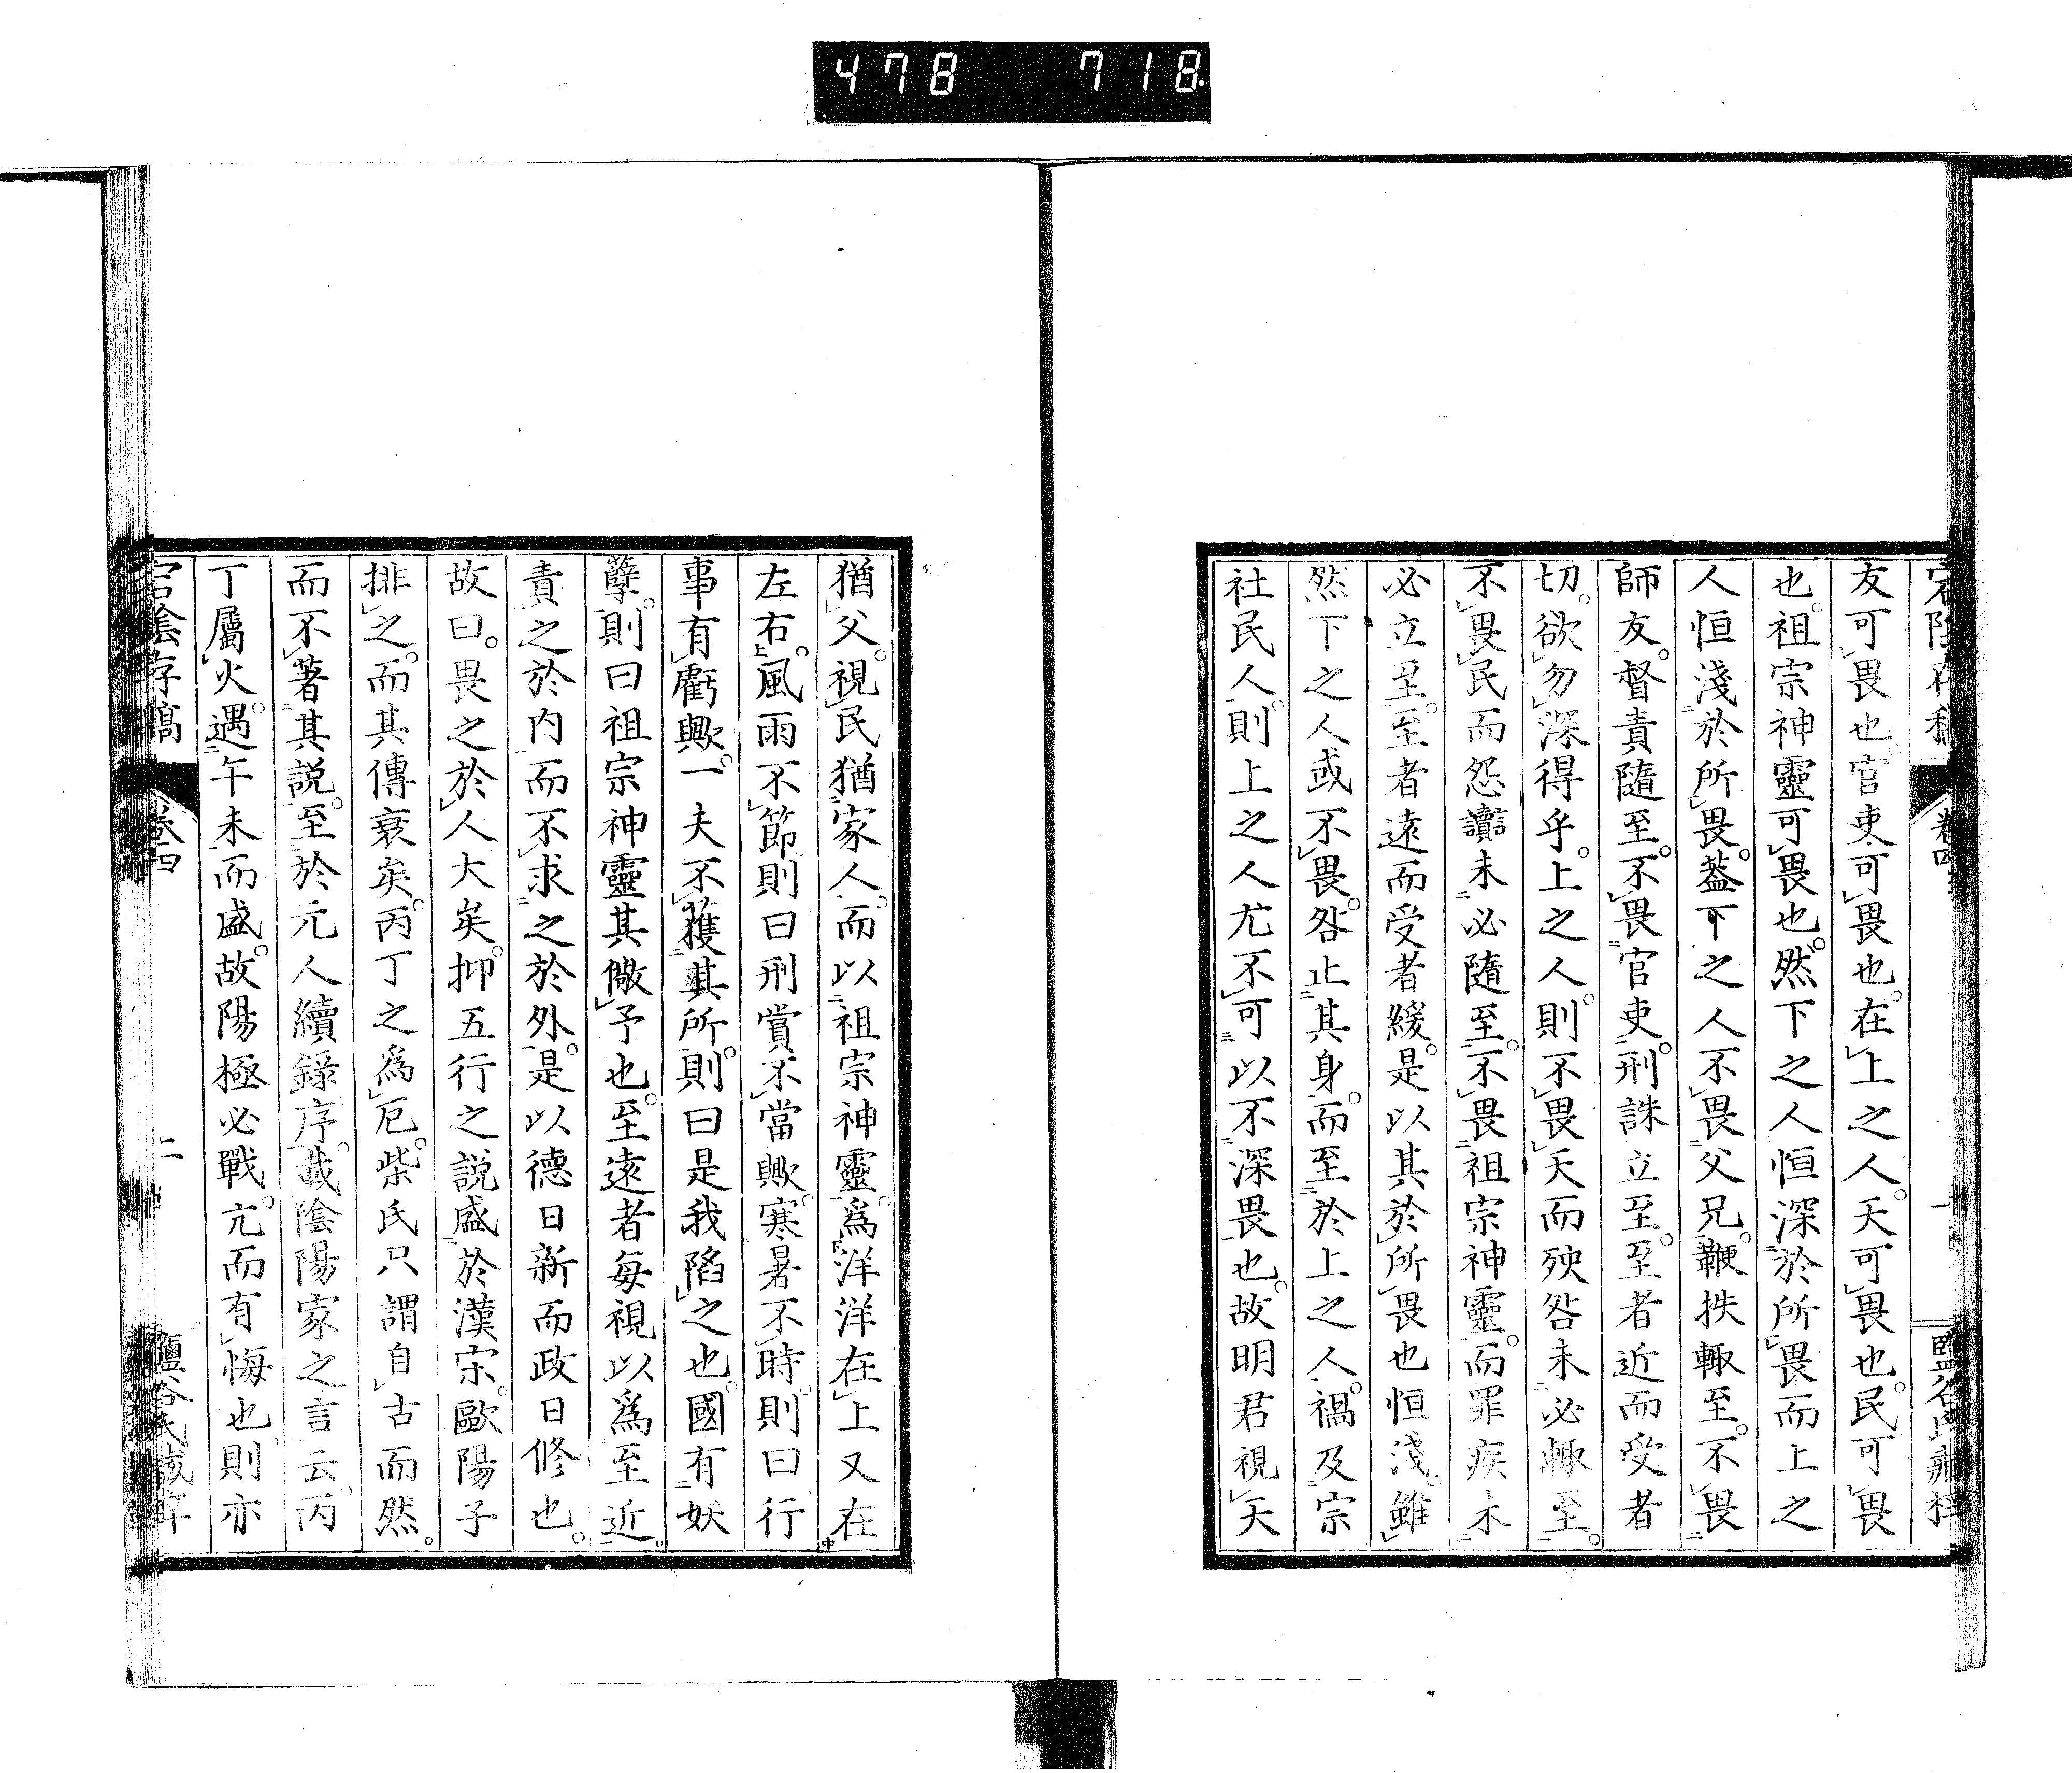 478 718
宕陰存稿 卷四 一 鹽谷氏藏梓
友可畏也。官吏可畏也。在上之人。天可畏也。民可畏
也。祖宗神靈可畏也。然下之人恒深於所畏。而上之
人恒淺於所畏。蓋下之人不畏父兄。鞭抶輙至。不畏
師友。督責隨至。不畏官吏。刑誅立至。至者近而受者
切。欲勿深得乎。上之人。則不畏天而殃咎未必輙至。
不畏民而怨讟未必隨至。不畏祖宗神靈。而罪疾未
必立至。至者遠而受者緩。是以其於所畏也恒淺。雖
然下之人或不畏。咎止其身。而至於上之人。禍及宗
社民人。則上之人尤不可以不深畏也。故明君視天
猶父。視民猶家人。而以祖宗神靈。爲洋洋在上又在
左右。風雨不節。則曰刑賞不當歟。寒暑不時。則曰行
事有虧歟。一夫不獲其所。則曰是我陷之也。國有妖
孽。則曰祖宗神靈其儆予也。至遠者每視以爲至近。
責之於内。而不求之於外。是以德日新而政日修也。
故曰。畏之於人大矣。抑五行之説盛於漢宋。歐陽子
排之。而其傳衰矣。丙丁之爲厄。柴氏只謂自古而然。
而不著其説。至於元人續錄序。載陰陽家之言云。丙
丁屬火。遇午未而盛。故陽極必戰。亢而有悔也。則亦
宕陰存稿 卷四 二 鹽谷氏藏梓